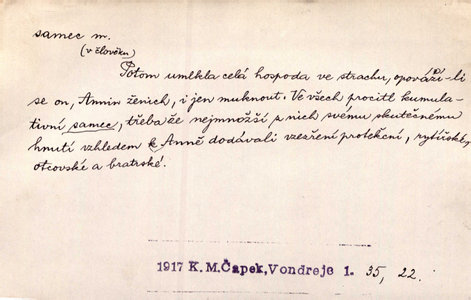 samec m.
(v člověku)
Potom umlkla celá hospoda ve strachu, opováží-li
se on, Annin ženich, i jen muknout. Ve všech procitl kumula-
tivní samec, třebaže nejmnožší z nich svému skutečnému
hnutí vzhledem k Anně dodávali vzezření protekční, rytířské,
otcovské a bratrské.
1917 K.M.Čapek, Vondrejc 1. 35, 22.